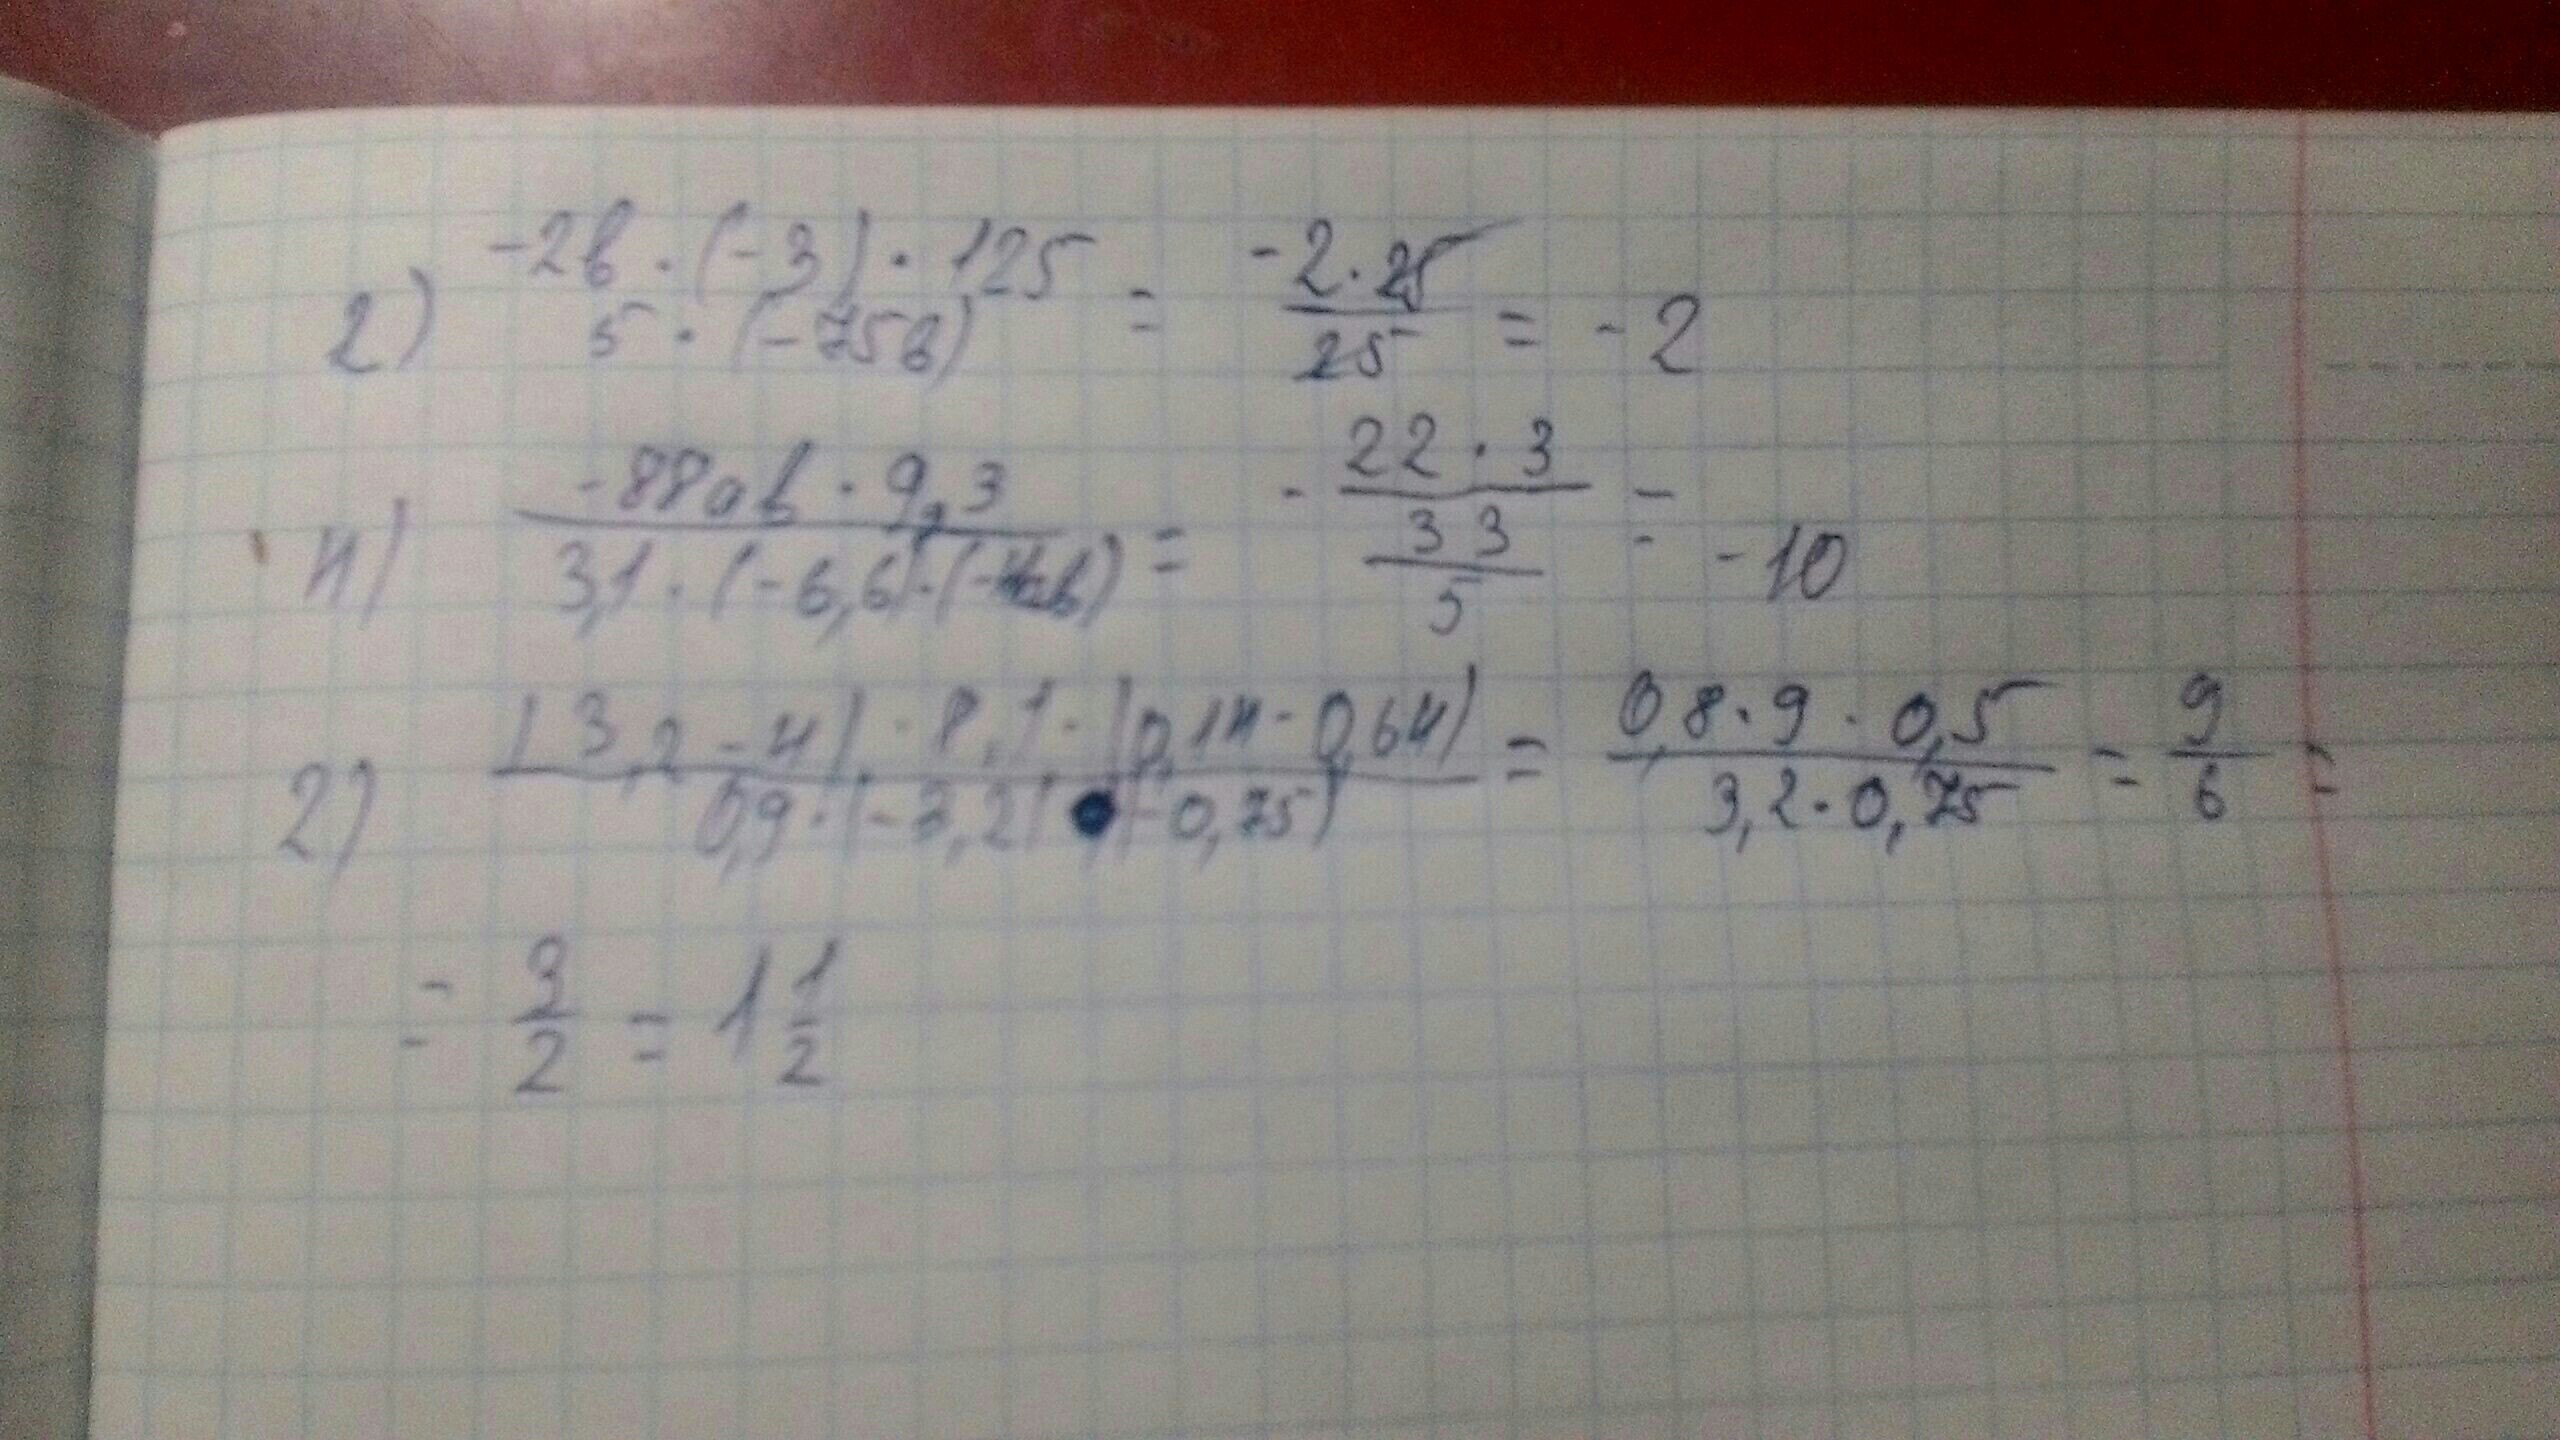 2) -2b · (-3) · 125 / 5 · (-75b) = -2 · 25 / 25 = -2
4) -88ab · 9,3 / 3,1 · (-6,6) · (-4ab) = - 22 · 3 / 33/5 = -10
2) (3,2 - 4) · 8,1 · (0,14 - 0,64) / 0,9 · (-3,2) · (-0,75) = 0,8 · 9 · 0,5 / 3,2 · 0,75 = 9/6 =
= 3/2 = 1 1/2